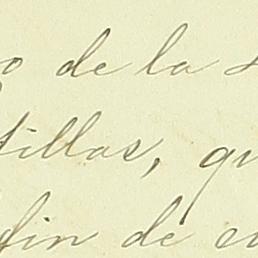 de la
tillas, qu
fin de